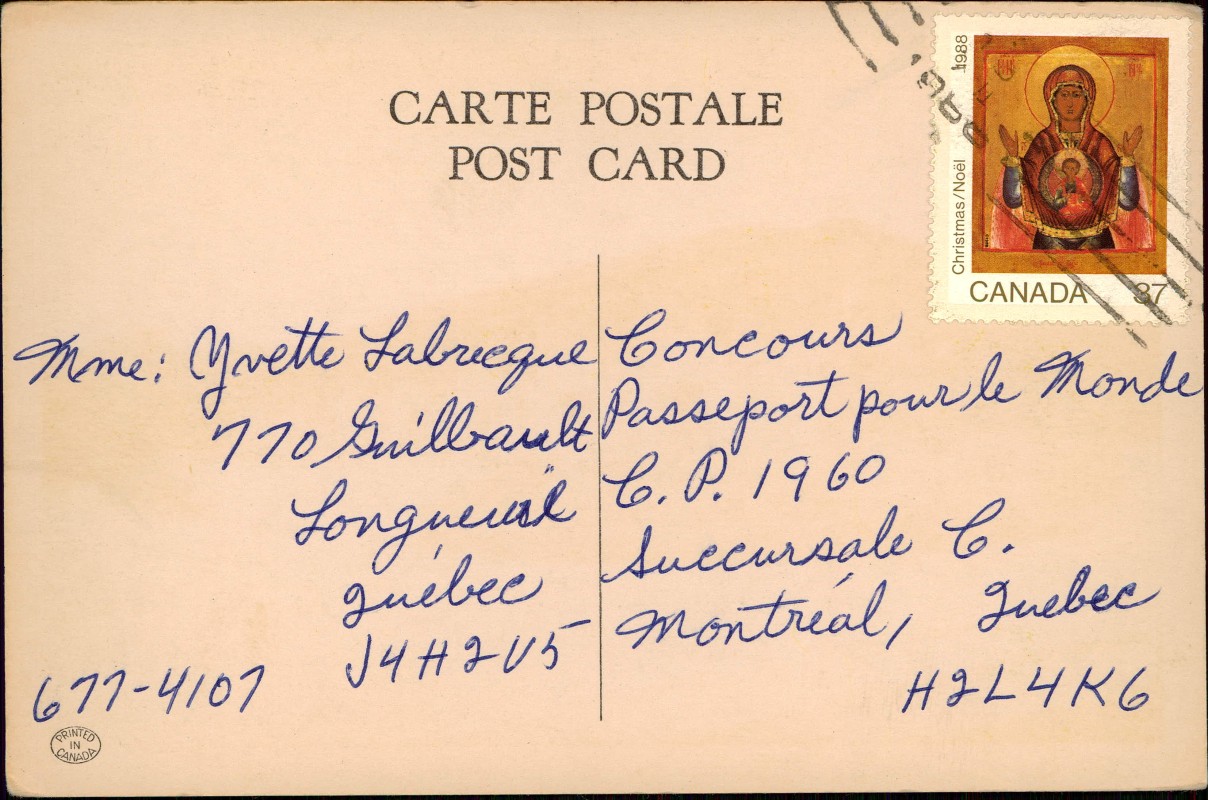 CARTE POSTALE
POST CARD
1988
Christmas/Noël
CANADA 37
Mme: Yvette Labrecque
770 Guilbault
Longueuil
Québec
J4H2V5
677-4107
PRINTED
IN
CANADA
Concours
Passeport pour le Monde
C.P. 1960
Succursale C.
Montréal, Quebec
H2L4K6